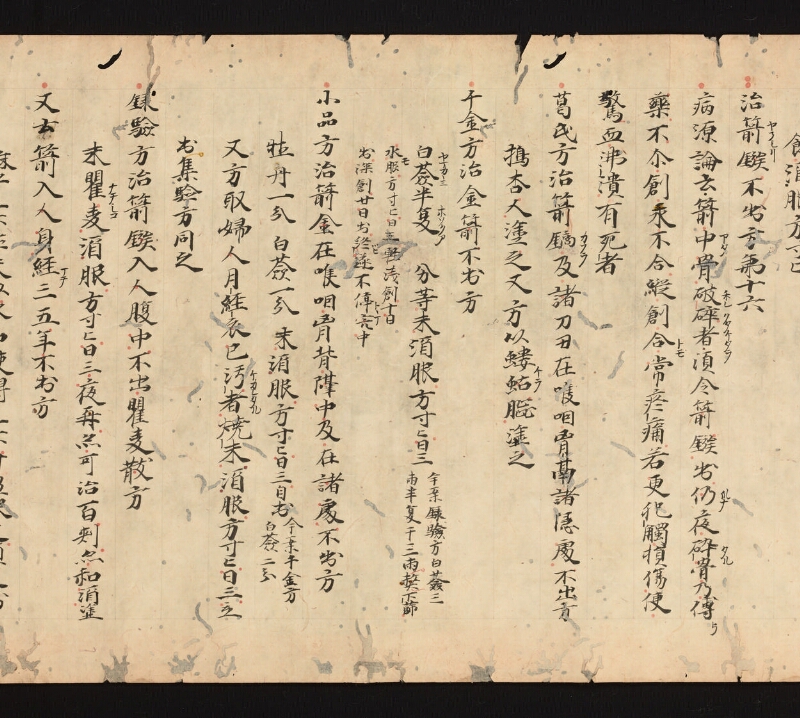 治箭鏃不出方第十六
病源論云箭中骨破碎者須令箭鏃出仍夜碎骨乃傅
藥不尒創永不合縱創合常疼痛若更犯觸損傷便
驚血沸潰有死者
葛氏方治箭鏑及諸刀刃在喉咽胷鬲諸隱處不出方
搗杏人塗之又方以螻蛄腦塗之
千金方治金箭不出方
白薟半夏 分等末酒服方寸匕日三
今案録驗方白薟三
兩半夏干三兩
水服方寸匕日三淺創十日
出深創廿日出終不停完中
小品方治箭金在喉咽胷背中及在諸處不出方
牡丹一分 白薟一分 末酒服方寸匕日三自出
今案千金方
白薟二分
又方取婦人月經衣已汚者燒末酒服方寸匕日三之
出集驗方同之
録驗方治箭鏃入人腹中不出瞿麦散方
末瞿麦酒服方寸匕日三夜再亦可治百刺亦和酒塗
又云箭入人身經三五年不出方